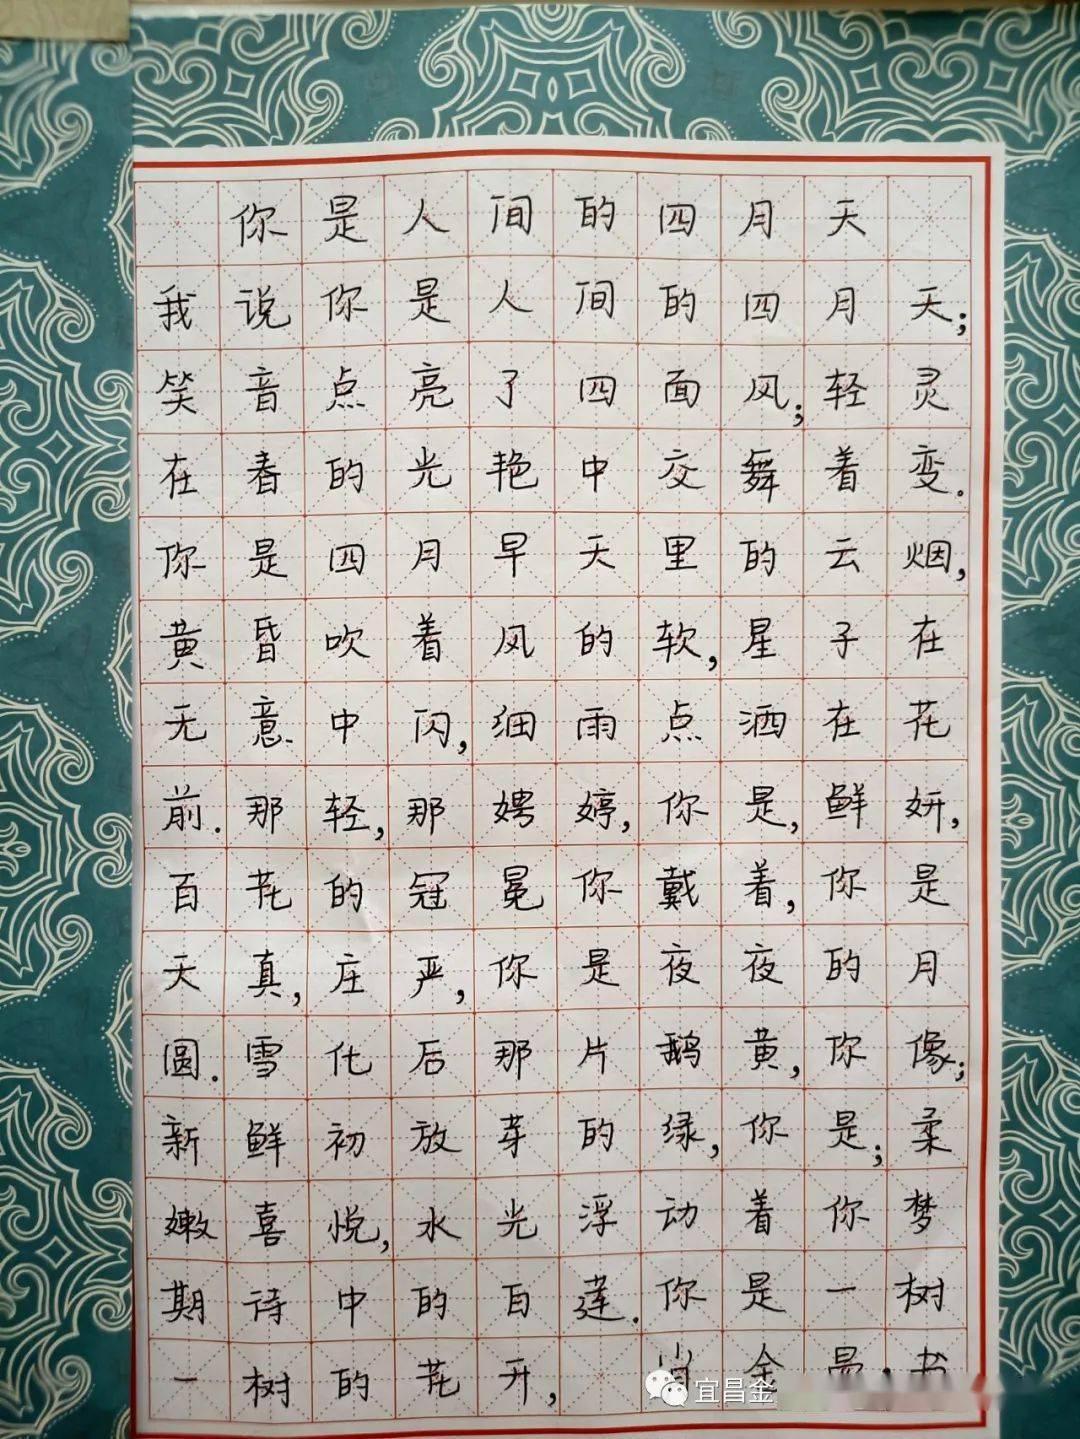 你是人间的四月天
我说你是人间的四月天;
笑音点亮了四面风;轻灵
在春的光艳中交舞着变.
你是四月早天里的云烟,
黄昏吹着风的软,星子在
无意中闪,细雨点洒在花
前.那轻,那娉婷,你是,鲜妍,
百花的冠冕你戴着,你是
天真,庄严,你是夜夜的月
圆.雪化后那片鹅黄,你像;
新鲜初放芽的绿,你是;柔
嫩喜悦,水光浮动着你梦
期诗中的百莲.你是一树
一树的花开,
宜昌金